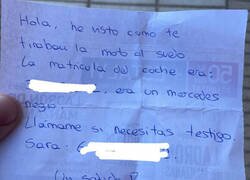 Hola, he visto como te
tiraban la moto al suelo
La matrícula del coche era:
, era un mercedes
negro.
Llámame si necesitas testigo.
Sara: 6
Un saludo